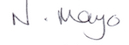 N. Mayo